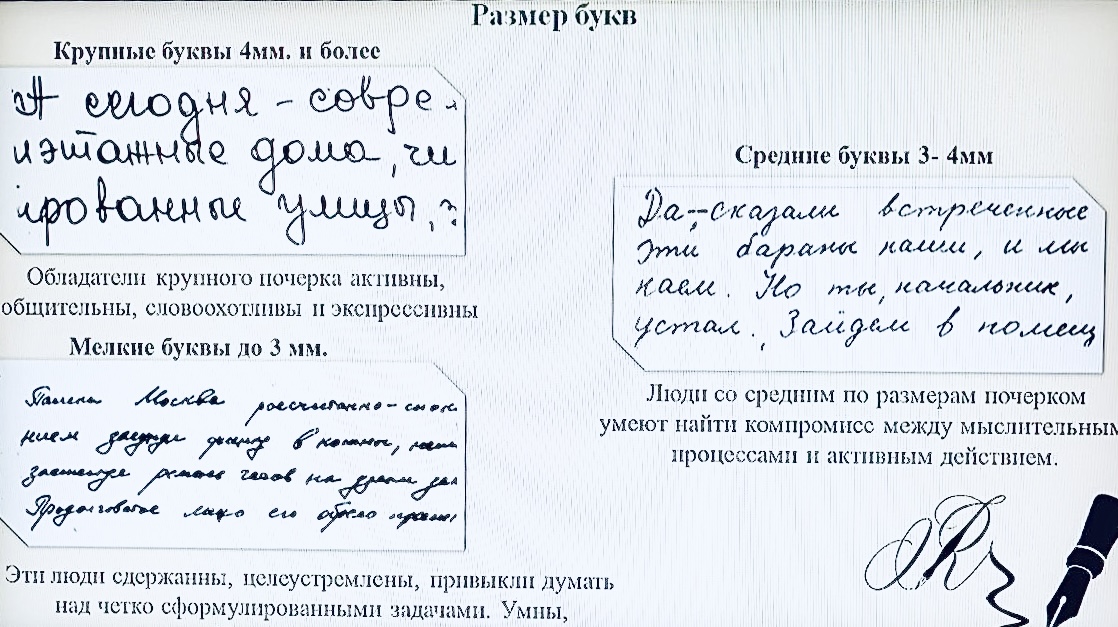 Размер букв
Крупные буквы 4мм. и более
А сегодня - совре
иэтажные дома, чи
ированные улицы,
Обладатели крупного почерка активны,
общительны, словоохотливы и экспрессивны
Мелкие буквы до 3 мм.
Москва
нием в
часов на
Продолговатое лицо его
Эти люди сдержанны, целеустремлены, привыкли думать
над четко сформулированными задачами. Умны,
Средние буквы 3- 4мм
Да,-сказали встреченные
эти бараны наши, и мы
каем. Но ты, начальник,
устал. Зайдем в помещ
Люди со средним по размерам почерком
умеют найти компромисс между мыслительным
процессами и активным действием.